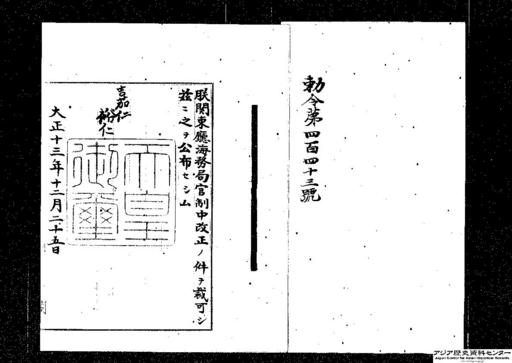 勅令第四百四十三號
朕關東廳海務局官制中改正ノ件ヲ裁可シ
茲ニ之ヲ公布セシム
嘉仁
裕仁
天皇御璽
大正十三年十二月二十五日
アジア歴史資料センター
Japan Center for Asian Historical Records